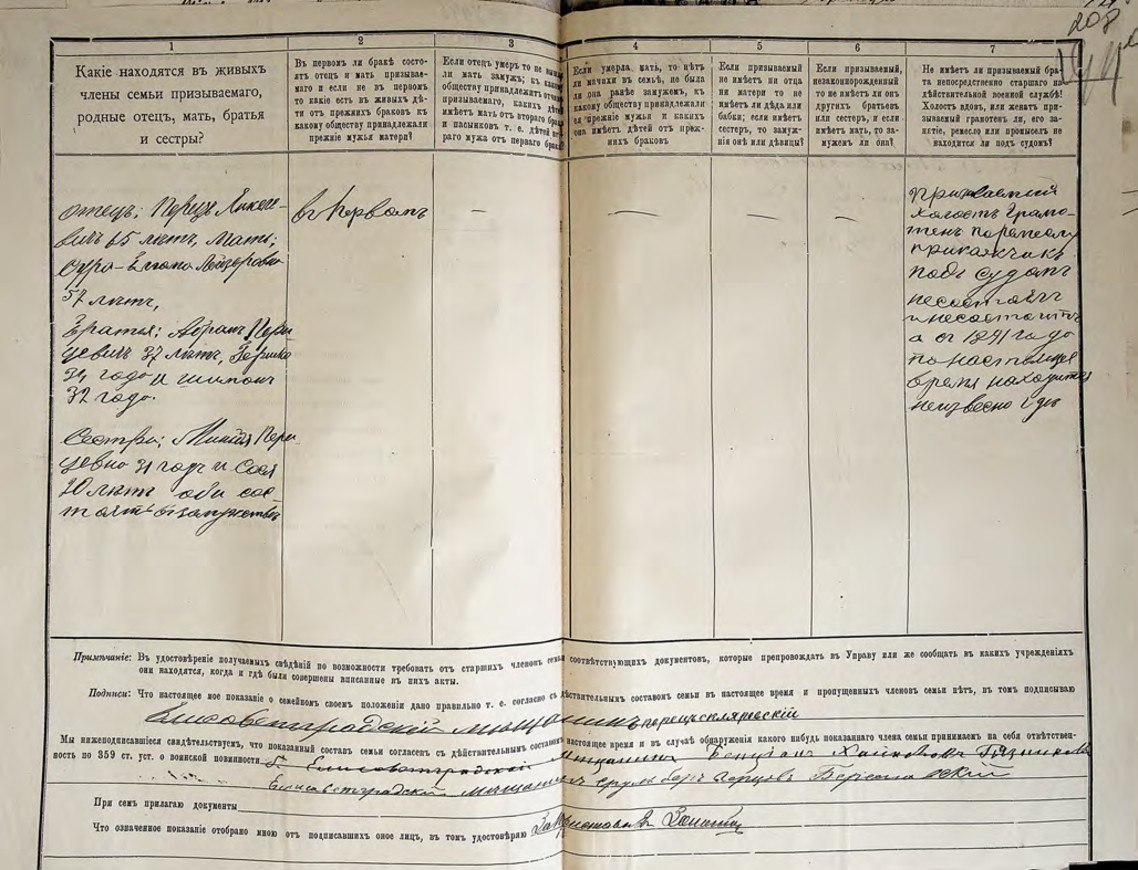 208
1
2
3
4
5
6
7
Какіе находятся въ живыхъ
члены семьи призываемаго,
родные отецъ, мать, братья
и сестры?
Въ первомъ ли бракѣ состо-
ятъ отецъ и мать призывае-
маго и если не въ первомъ
то какіе есть въ живыхъ дѣ-
ти отъ прежнихъ браковъ къ
какому обществу принадлежали
прежніе мужья матери?
Если отецъ умеръ то не вышла
ли мать замужъ; къ какому
обществу принадлежитъ отчимъ
призываемаго, какихъ дѣтей
имѣетъ мать отъ втораго брака
и пасынковъ т. е. дѣтей вто-
раго мужа отъ перваго брака?
Если умерла мать, то нѣтъ
ли мачихи въ семьѣ, не была
ли она ранѣе замужемъ, къ
какому обществу принадлежали
ея прежніе мужья и какихъ
она имѣетъ дѣтей отъ преж-
нихъ браковъ
Если призываемый
не имѣетъ ни отца
ни матери то не
имѣетъ ли дѣда или
бабки; если имѣетъ
сестеръ, то замуж-
нія онѣ или дѣвицы?
Если призываемый,
незаконорожденный
то не имѣетъ ли онъ
другихъ братьевъ
или сестеръ, и если
имѣетъ мать, то за-
мужемъ ли она?
Не имѣетъ ли призываемый бра-
та непосредственно старшаго на
дѣйствительной военной службѣ!
Холостъ вдовъ, или женатъ при-
зываемый грамотенъ ли, его за-
нятіе, ремесло или промыселъ не
находится ли подъ судомъ?
отецъ; Перецъ
вичъ 65 лѣтъ, Мать;
Сура - Лейзеровна
57 лѣтъ,
Братья; Абрамъ Пер
цевичъ 37 лѣтъ, Гершко
34 года и
32 года.
Сестры; Пер
цевна 31 годъ и Сося
20 лѣтъ оби сос-
тоятъ взамужствѣ
въ первомъ
—
—
—
—
Призываемый
холостъ грамо-
тенъ поремеслу
прикажчикъ
подъ судомъ
несостоялъ
и несостоитъ
а съ 1891 года
по настоящее
время находится
неизвесно где
Примѣчаніе: Въ удостовѣреніе получаемыхъ свѣдѣній по возможности требовать отъ старшихъ членовъ семьи соотвѣтствующихъ документовъ, которые препровождать въ Управу или же сообщать въ какихъ учрежденіяхъ
они находятся, когда и гдѣ были совершены вписанные въ нихъ акты.
Подписи: Что настоящее мое показаніе о семейномъ своемъ положеніи дано правильно т. е. согласно съ дѣйствительнымъ составомъ семьи въ настоящее время и пропущенныхъ членовъ семьи нѣтъ, въ томъ подписываю
Елисоветградскій мѣщанинъ перецъ скляревскій
Мы нижеподписавшіеся свидѣтельствуемъ, что показанный составъ семьи согласенъ съ дѣйствительнымъ составомъ настоящее время и въ случаѣ обнаруженія какого нибудь показаннаго члена семьи принимаемъ на себя отвѣтствен-
ность по 359 ст. уст. о воинской повинности Елисоветградскій мѣщанинъ Бенціанъ
Елисаветградскій мѣщанинъ Сруль беръ
При семъ прилагаю документы
Что означенное показаніе отобрано мною отъ подписавшихъ оное лицъ, въ томъ удостовѣряю